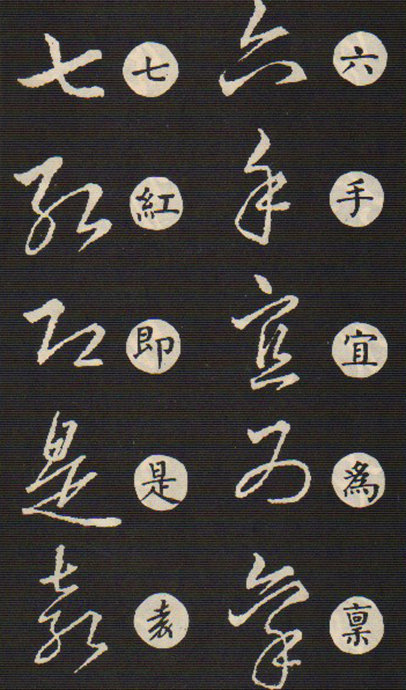 六手宜爲稟
六手宜爲稟
七紅即是袁
七紅即是袁